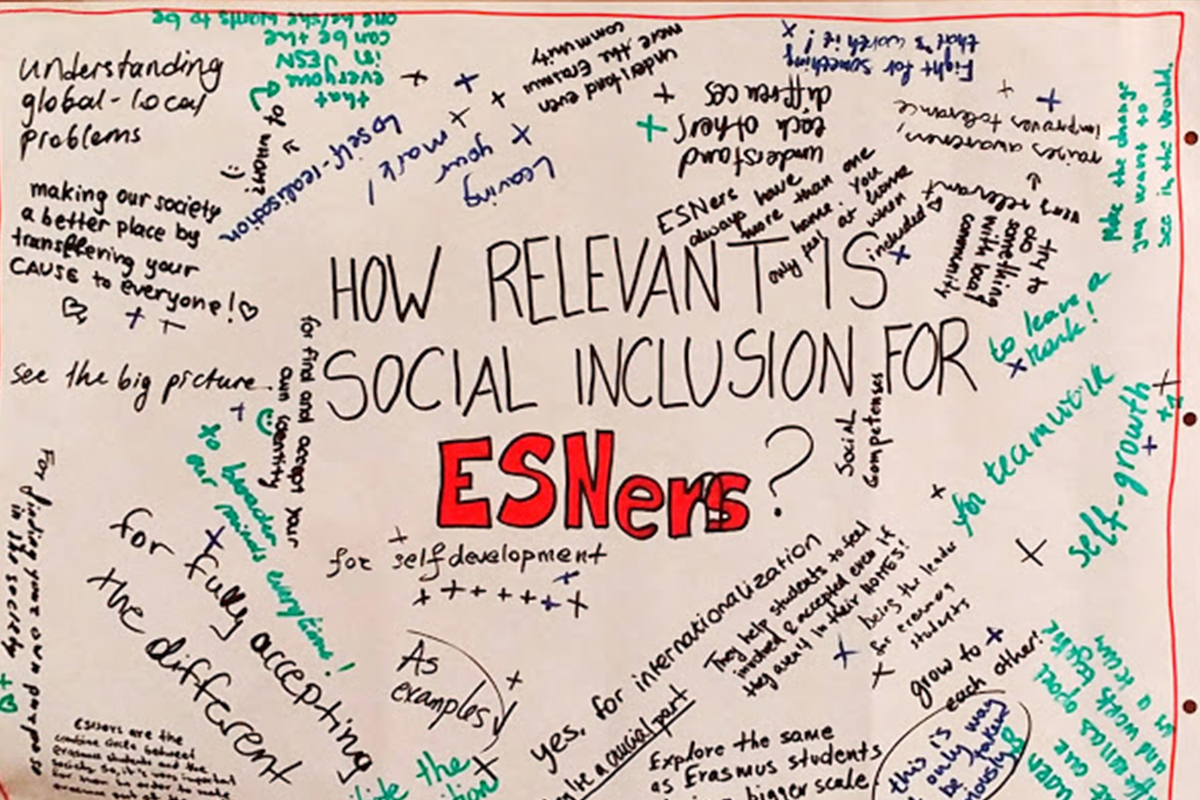 HOW RELEVANT IS
SOCIAL INCLUSION FOR
ESNers?
understanding
global-local
problems
making our society
a better place by
transffering your
CAUSE to everyone!
see the big picture
that
everyone
in JESN
can be the
one he/she wants to be
of what?
:)
to self-realisation
Leaving
your
mark!
understand even
more the Erasmus
community
understand
each others
differences
Fight for something
that's worth it!
raises awareness,
improves tolerance
very relevant
ESNers
always have
more than one
home. You
only feel at home
when
included
try to
do
something
with local
community
Make the change
you want to
see in the world.
to leave a
mark!
for teamwork
self-growth
Social
Competenses
for find and accept your
own identity
to broader
our minds everytime!
For finding your own purpose
in the society
for fully accepting
the different
for self development
As
examples
yes, for internationalization
be a crucial part
They help students to feel
involved & accepted even if
they aren't in their homes!
being the leader
for erasmus
students
grow to
each other!
this is
only way
be taken
Explore the same
as Erasmus students
bigger scale
ESNers are the
between
erasmus students and the
society. So, it's very important
for them in order to make
the